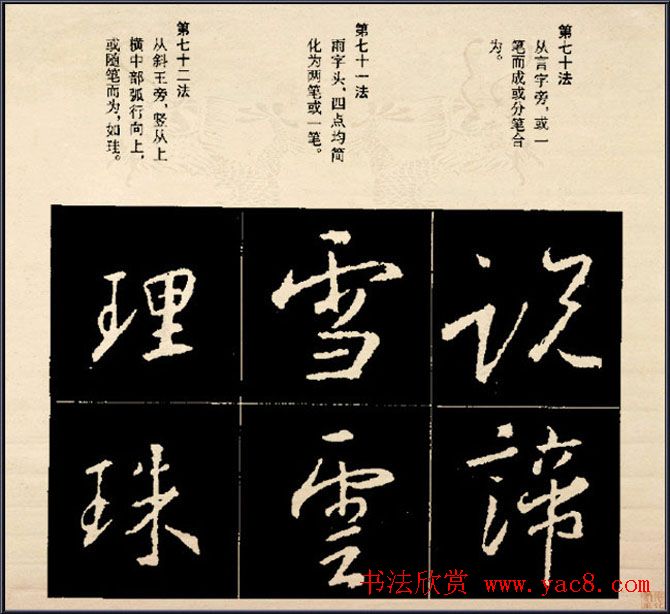 第七十法
从言字旁，或一
笔而成或分笔合
为。
第七十一法
雨字头，四点均简
化为两笔或一笔。
第七十二法
从斜王旁，竖从上
横中部弧行向上，
或随笔而为，如珪。
説
諦
雪
雲
理
珠
书法欣赏 www.yac8.com